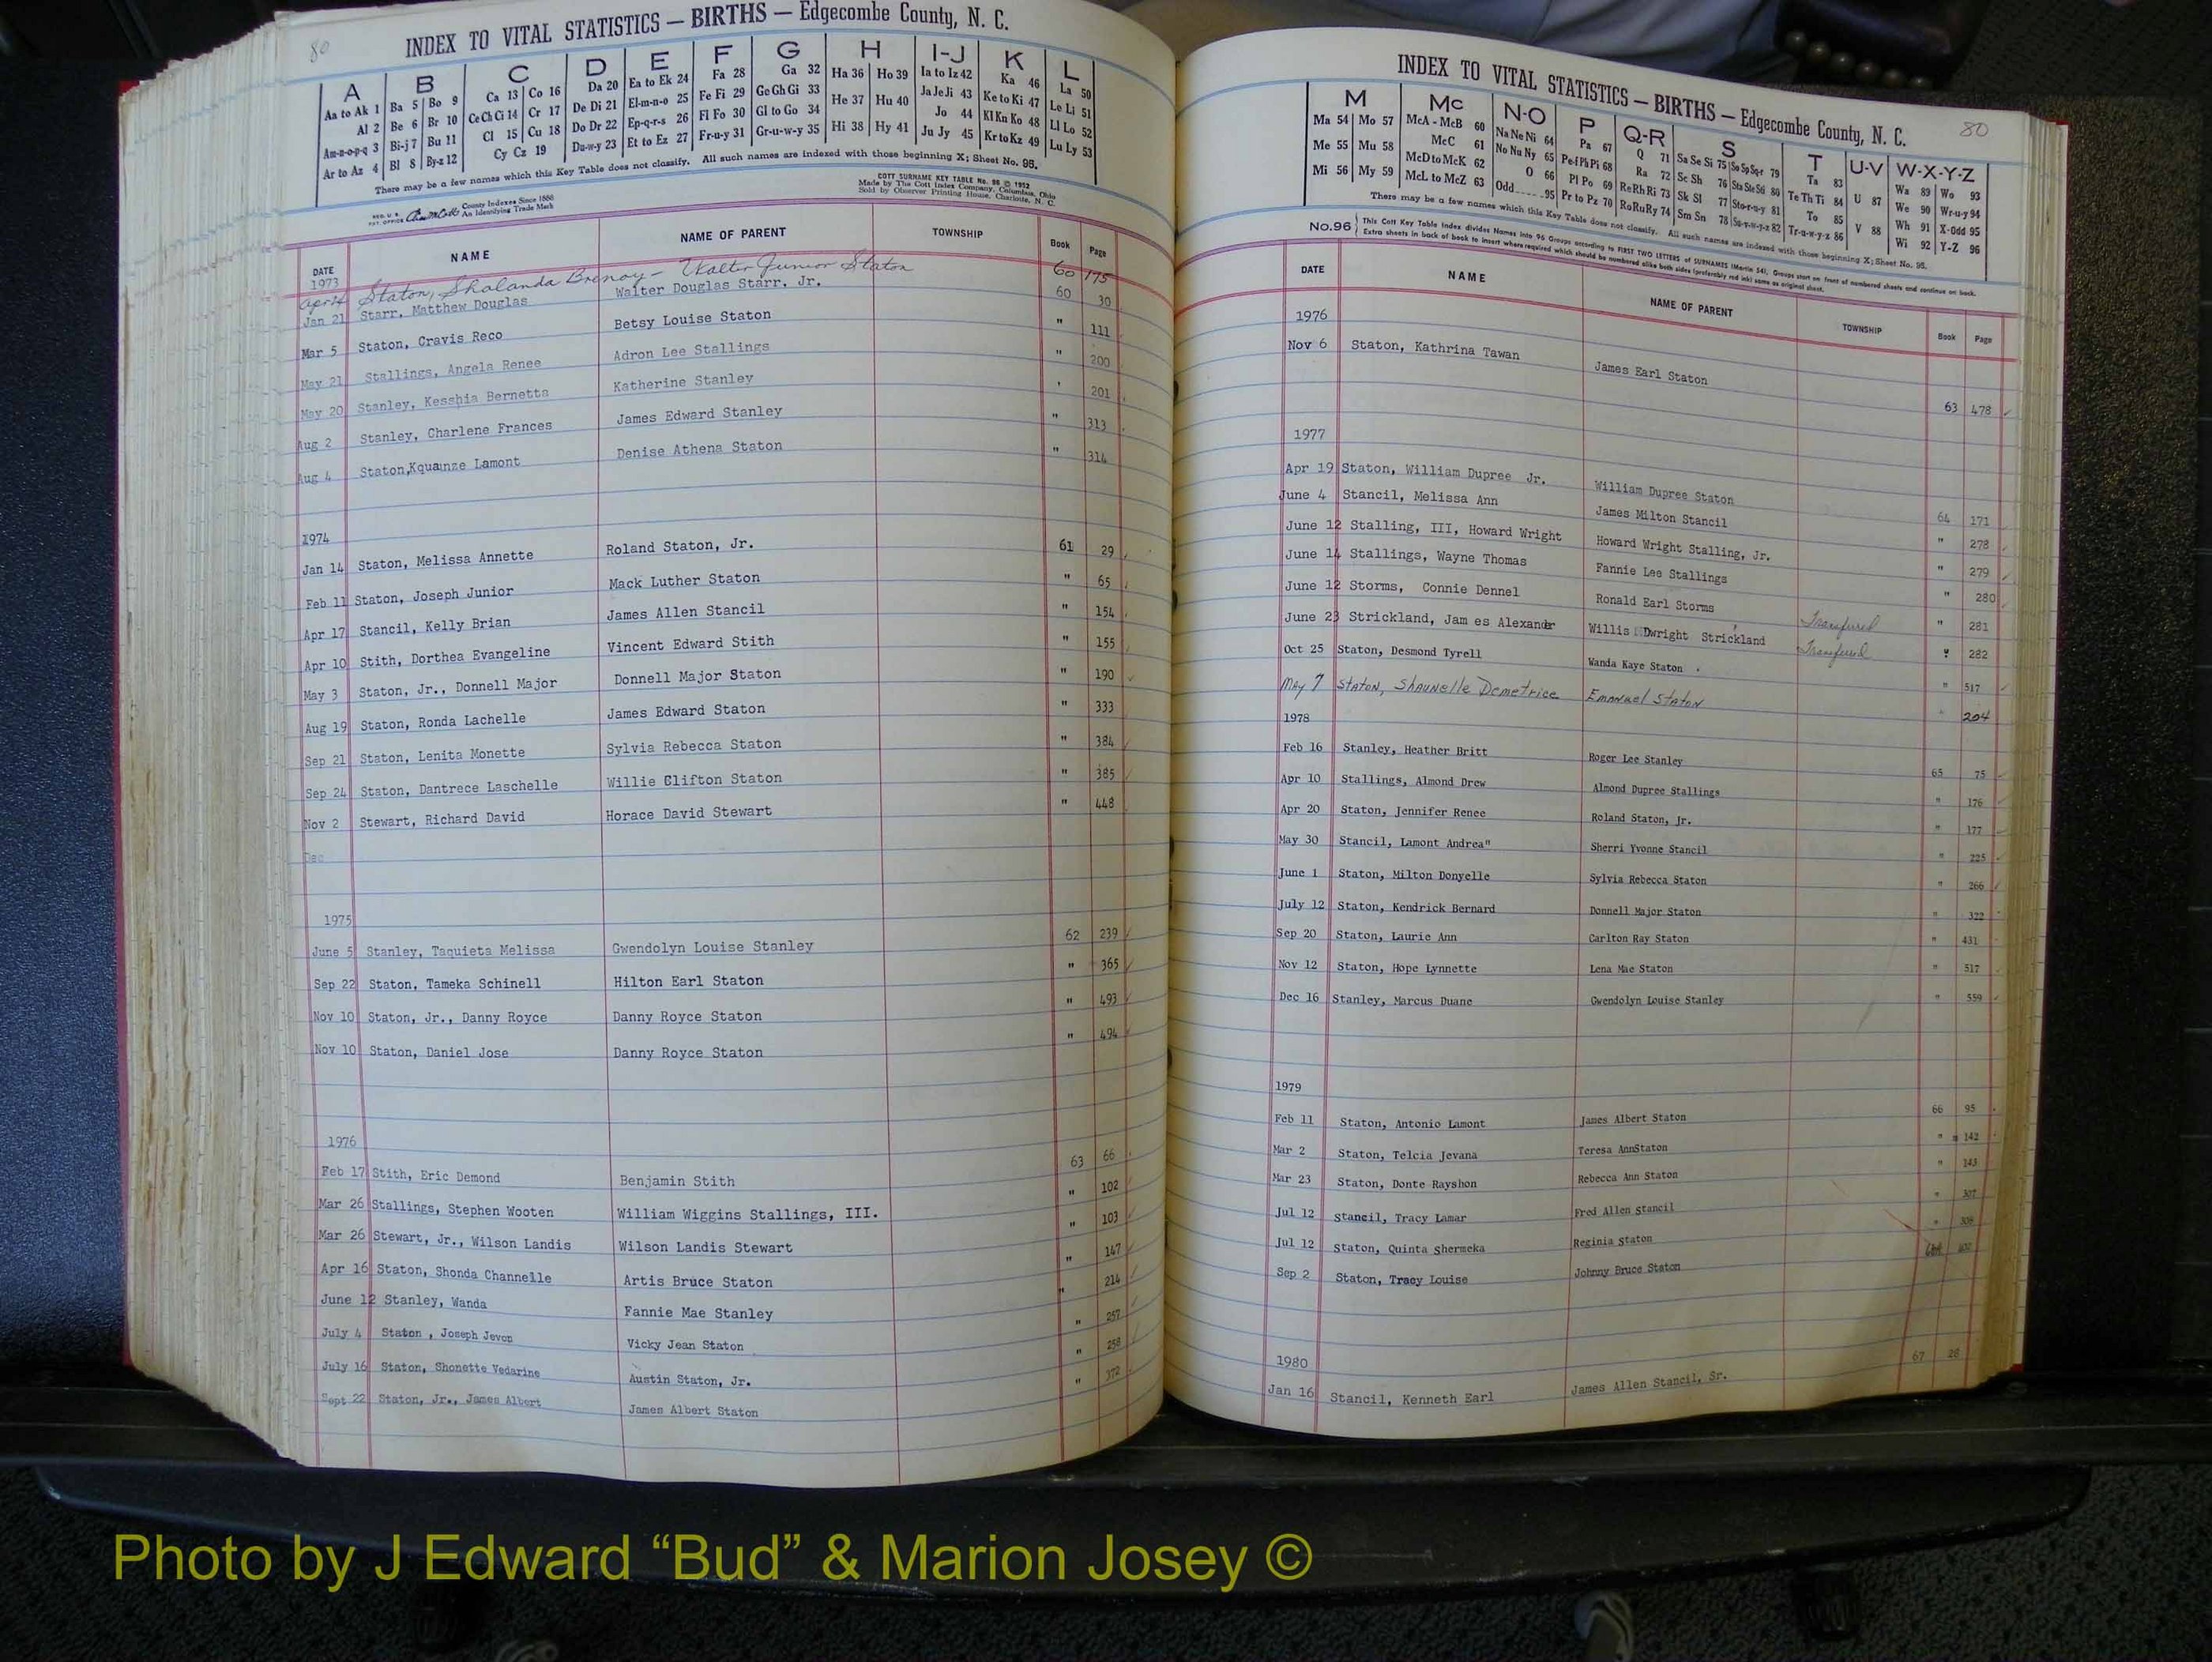 80
INDEX TO VITAL STATISTICS — BIRTHS — Edgecombe County, N. C.
A B C D E F G H I-J K L
Aa to Ak 1 Ba 5 Bo 9 Ca 13 Co 16 Da 20 Ea to Ek 24 Fa 28 Ga 32 Ha 36 Ho 39 Ia to Iz 42 Ka 46 La 50
Al 2 Be 6 Br 10 Ce Ch Ci 14 Cr 17 De Di 21 El-m-n-o 25 Fe Fi 29 Ge Gh Gi 33 He 37 Hu 40 Ja Je Ji 43 Ke to Ki 47 Le Li 51
Am-n-o-p-q 3 Bi-j 7 Bu 11 Cl 15 Cu 18 Do Dr 22 Ep-q-r-s 26 Fl Fo 30 Gl to Go 34 Hi 38 Hy 41 Jo 44 Kl Kn Ko 48 Ll Lo 52
Ar to Az 4 Bl 8 By-z 12 Cy Cz 19 Du-w-y 23 Et to Ez 27 Fr-u-y 31 Gr-u-w-y 35 Ju Jy 45 Kr to Kz 49 Lu Ly 53
There may be a few names which this Key Table does not classify. All such names are indexed with those beginning X; Sheet No. 95.
REG. U. S. PAT. OFFICE County Indexes Since 1888 An Identifying Trade Mark
COTT SURNAME KEY TABLE No. 96 © 1952
Made by The Cott Index Company, Columbus, Ohio
Sold by Observer Printing House, Charlotte, N. C.
DATE NAME NAME OF PARENT TOWNSHIP Book Page
1973
Apr 4 Staton, Shalanda Brenay - Walter Junior Staton 60 175
Jan 21 Starr, Matthew Douglas Walter Douglas Starr, Jr. 60 30
Mar 5 Staton, Cravis Reco Betsy Louise Staton " 111
May 21 Stallings, Angela Renee Adron Lee Stallings " 200
May 20 Stanley, Kesshia Bernetta Katherine Stanley ' 201
Aug 2 Stanley, Charlene Frances James Edward Stanley " 313
Aug 4 Staton,Kquainze Lamont Denise Athena Staton " 314
1974
Jan 14 Staton, Melissa Annette Roland Staton, Jr. 61 29
Feb 11 Staton, Joseph Junior Mack Luther Staton " 65
Apr 17 Stancil, Kelly Brian James Allen Stancil " 154
Apr 10 Stith, Dorthea Evangeline Vincent Edward Stith " 155
May 3 Staton, Jr., Donnell Major Donnell Major Staton " 190
Aug 19 Staton, Ronda Lachelle James Edward Staton " 333
Sep 21 Staton, Lenita Monette Sylvia Rebecca Staton " 384
Sep 24 Staton, Dantrece Laschelle Willie Clifton Staton " 385
Nov 2 Stewart, Richard David Horace David Stewart " 448
Dec
1975
June 5 Stanley, Taquieta Melissa Gwendolyn Louise Stanley 62 239
Sep 22 Staton, Tameka Schinell Hilton Earl Staton " 365
Nov 10 Staton, Jr., Danny Royce Danny Royce Staton " 493
Nov 10 Staton, Daniel Jose Danny Royce Staton " 494
1976
Feb 17 Stith, Eric Demond Benjamin Stith 63 66
Mar 26 Stallings, Stephen Wooten William Wiggins Stallings, III. " 102
Mar 26 Stewart, Jr., Wilson Landis Wilson Landis Stewart " 103
Apr 16 Staton, Shonda Channelle Artis Bruce Staton " 147
June 12 Stanley, Wanda Fannie Mae Stanley " 214
July 4 Staton , Joseph Jevon Vicky Jean Staton " 257
July 16 Staton, Shonette Vedarine Austin Staton, Jr. " 258
Sept 22 Staton, Jr., James Albert James Albert Staton " 372
INDEX TO VITAL STATISTICS — BIRTHS — Edgecombe County, N. C. 80
M Mc N-O P Q-R S T U-V W-X-Y-Z
Ma 54 Mo 57 McA - McB 60 Na Ne Ni 64 Pa 67 Q 71 Sa Se Si 75 So Sp Sq-r 79 Ta 83 U 87 Wa 89 Wo 93
Me 55 Mu 58 McC 61 No Nu Ny 65 Pe-f Ph Pi 68 Ra 72 Sc Sh 76 Sta Ste Sti 80 Te Th Ti 84 V 88 We 90 Wr-u-y 94
Mi 56 My 59 McD to McK 62 O 66 Pl Po 69 Re Rh Ri 73 Sk Sl 77 Sto-r-u-y 81 To 85 Wh 91 X-Odd 95
McL to McZ 63 Odd 95 Pr to Pz 70 Ro Ru Ry 74 Sm Sn 78 Su-v-w-y-z 82 Tr-u-w-y-z 86 Wi 92 Y-Z 96
There may be a few names which this Key Table does not classify. All such names are indexed with those beginning X; Sheet No. 95.
No.96 This Cott Key Table Index divides Names into 96 Groups according to FIRST TWO LETTERS of SURNAMES (Martin 54), Groups start on front of numbered sheets and continue on back.
Extra sheets in back of book to insert where required which should be numbered alike both sides (preferably red ink) same as original sheet.
DATE NAME NAME OF PARENT TOWNSHIP Book Page
1976
Nov 6 Staton, Kathrina Tawan James Earl Staton 63 478
1977
Apr 19 Staton, William Dupree Jr. William Dupree Staton 64 171
June 4 Stancil, Melissa Ann James Milton Stancil " 278
June 12 Stalling, III, Howard Wright Howard Wright Stalling, Jr. " 279
June 14 Stallings, Wayne Thomas Fannie Lee Stallings " 280
June 12 Storms, Connie Dennel Ronald Earl Storms Transfured " 281
June 23 Strickland, Jam es Alexander Willis Dwright Strickland Transfured " 282
Oct 25 Staton, Desmond Tyrell Wanda Kaye Staton " 517
May 7 Staton, Shaunelle Demetrice Emanuel Staton " 204
1978
Feb 16 Stanley, Heather Britt Roger Lee Stanley 65 75
Apr 10 Stallings, Almond Drew Almond Dupree Stallings " 176
Apr 20 Staton, Jennifer Renee Roland Staton, Jr. " 177
May 30 Stancil, Lamont Andrea" Sherri Yvonne Stancil " 225
June 1 Staton, Milton Donyelle Sylvia Rebecca Staton " 266
July 12 Staton, Kendrick Bernard Donnell Major Staton " 322
Sep 20 Staton, Laurie Ann Carlton Ray Staton " 431
Nov 12 Staton, Hope Lynnette Lena Mae Staton " 517
Dec 16 Stanley, Marcus Duane Gwendolyn Louise Stanley " 559
1979
Feb 11 Staton, Antonio Lamont James Albert Staton 66 95
Mar 2 Staton, Telcia Jevana Teresa AnnStaton " 142
Mar 23 Staton, Donte Rayshon Rebecca Ann Staton " 143
Jul 12 Stancil, Tracy Lamar Fred Allen Stancil " 307
Jul 12 Staton, Quinta Shermeka Reginia Staton " 308
Sep 2 Staton, Tracy Louise Johnny Bruce Staton
1980
Jan 16 Stancil, Kenneth Earl James Allen Stancil, Sr. 67 28
Photo by J Edward “Bud” & Marion Josey ©